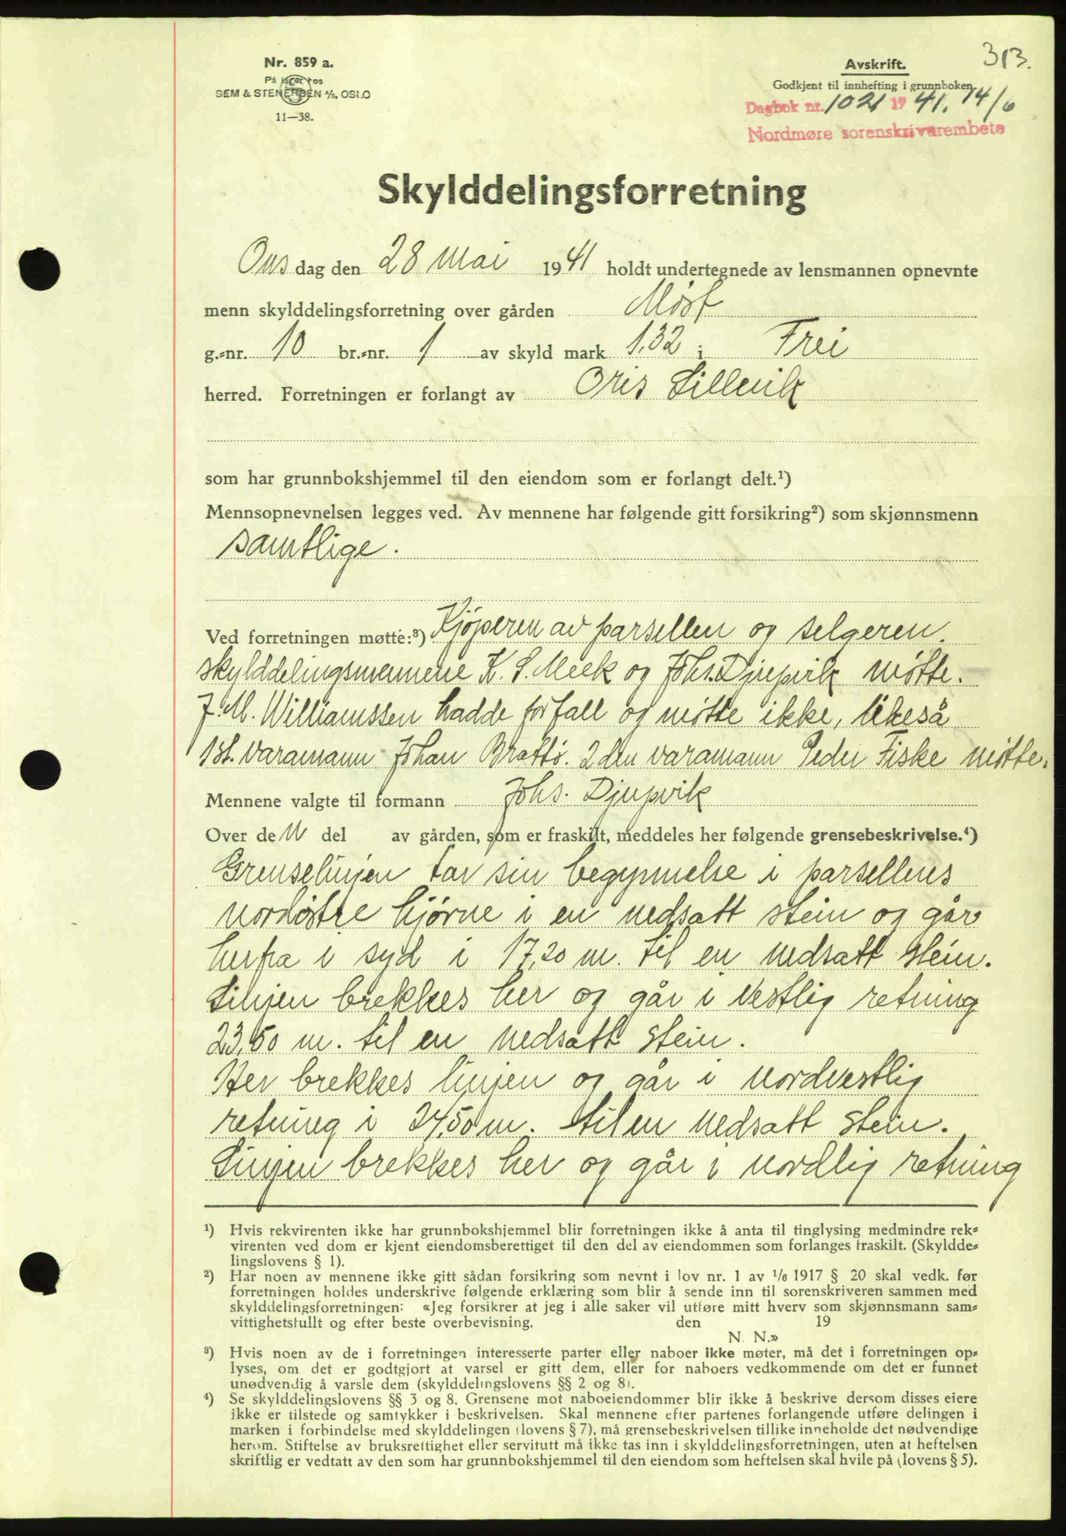 313.
Nr. 859 a.
På lager hos
SEM & STENERSEN A/S, OSLO
11—38.
Avskrift.
Godkjent til innhefting i grunnboken
Dagbok nr. 1021 1941. 14/6
Nordmøre sorenskrivarembete
Skylddelingsforretning
Ons dag den 28 mai 1941 holdt undertegnede av lensmannen opnevnte
menn skylddelingsforretning over gården Møst
g.=nr. 10 br.=nr. 1 av skyld mark 1,32 i Frei
herred. Forretningen er forlangt av Oris Lillevik
som har grunnbokshjemmel til den eiendom som er forlangt delt.¹)
Mennsopnevnelsen legges ved. Av mennene har følgende gitt forsikring²) som skjønnsmenn
samtlige.
Ved forretningen møtte:³) Kjøperen av parsellen og selgeren.
skylddelingsmennene K. S. Meek og Johs. Djupvik møtte.
J. M. Williamssen hadde forfall og møtte ikke, likeså
1st. varamann Johan Brattø. 2den varamann Peder Fiske møtte.
Mennene valgte til formann Johs. Djupvik
Over den del av gården, som er fraskilt, meddeles her følgende grensebeskrivelse.⁴)
Grenselinjen tar sin begynnelse i parsellens
nordøstre hjørne i en nedsatt stein og går
herfra i syd i 17,20 m. til en nedsatt stein.
Linjen brekkes her og går i vestlig retning
23,50 m. til en nedsatt stein.
Her brekkes linjen og går i nordvestlig
retning i 24,50 m. til en nedsatt stein.
Linjen brekkes her og går i nordlig retning
¹) Hvis rekvirenten ikke har grunnbokshjemmel blir forretningen ikke å anta til tinglysing medmindre rek=
virenten ved dom er kjent eiendomsberettiget til den del av eiendommen som forlanges fraskilt. (Skyldde=
lingslovens § 1).
²) Har noen av mennene ikke gitt sådan forsikring som nevnt i lov nr. 1 av 1/6 1917 § 20 skal vedk. før
forretningen holdes underskrive følgende erklæring som blir å sende inn til sorenskriveren sammen med
skylddelingsforretningen: «Jeg forsikrer at jeg i alle saker vil utføre mitt hverv som skjønnsmann sam=
vittighetsfullt og efter beste overbevisning. den 19
N. N.»
³) Hvis noen av de i forretningen interesserte parter eller naboer ikke møter, må det i forretningen op=
lyses, om det er godtgjort at varsel er gitt dem, eller for naboers vedkommende om det er funnet
unødvendig å varsle dem (skylddelingslovens §§ 2 og 8).
⁴) Se skylddelingslovens §§ 3 og 8. Grensene mot naboeiendommer blir ikke å beskrive dersom disses eiere
ikke er tilstede og samtykker i beskrivelsen. Skal mennene efter partenes forlangende utføre delingen i
marken i forbindelse med skylddelingen (lovens § 7), må grensebeskrivelsen tillike inneholde det nødvendige
herom. Stiftelse av bruksrettighet eller servitutt må ikke tas inn i skylddelingsforretningen, uten at heftelsen
skriftlig er vedtatt av den som har grunnbokshjemmel til den eiendom som heftelsen skal hvile på (lovens § 5).